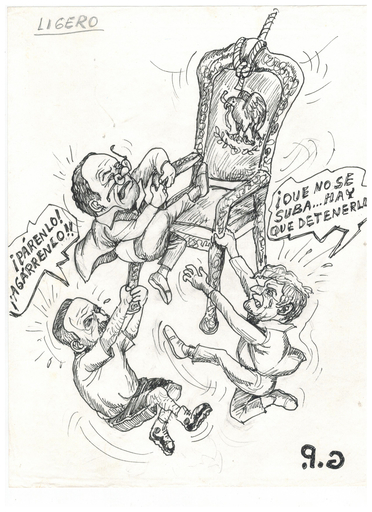 LIGERO
¡PÁRENLO!
¡AGÁRRENLO!!
¡QUE NO SE
SUBA... HAY
QUE DETENERLO
G.P.